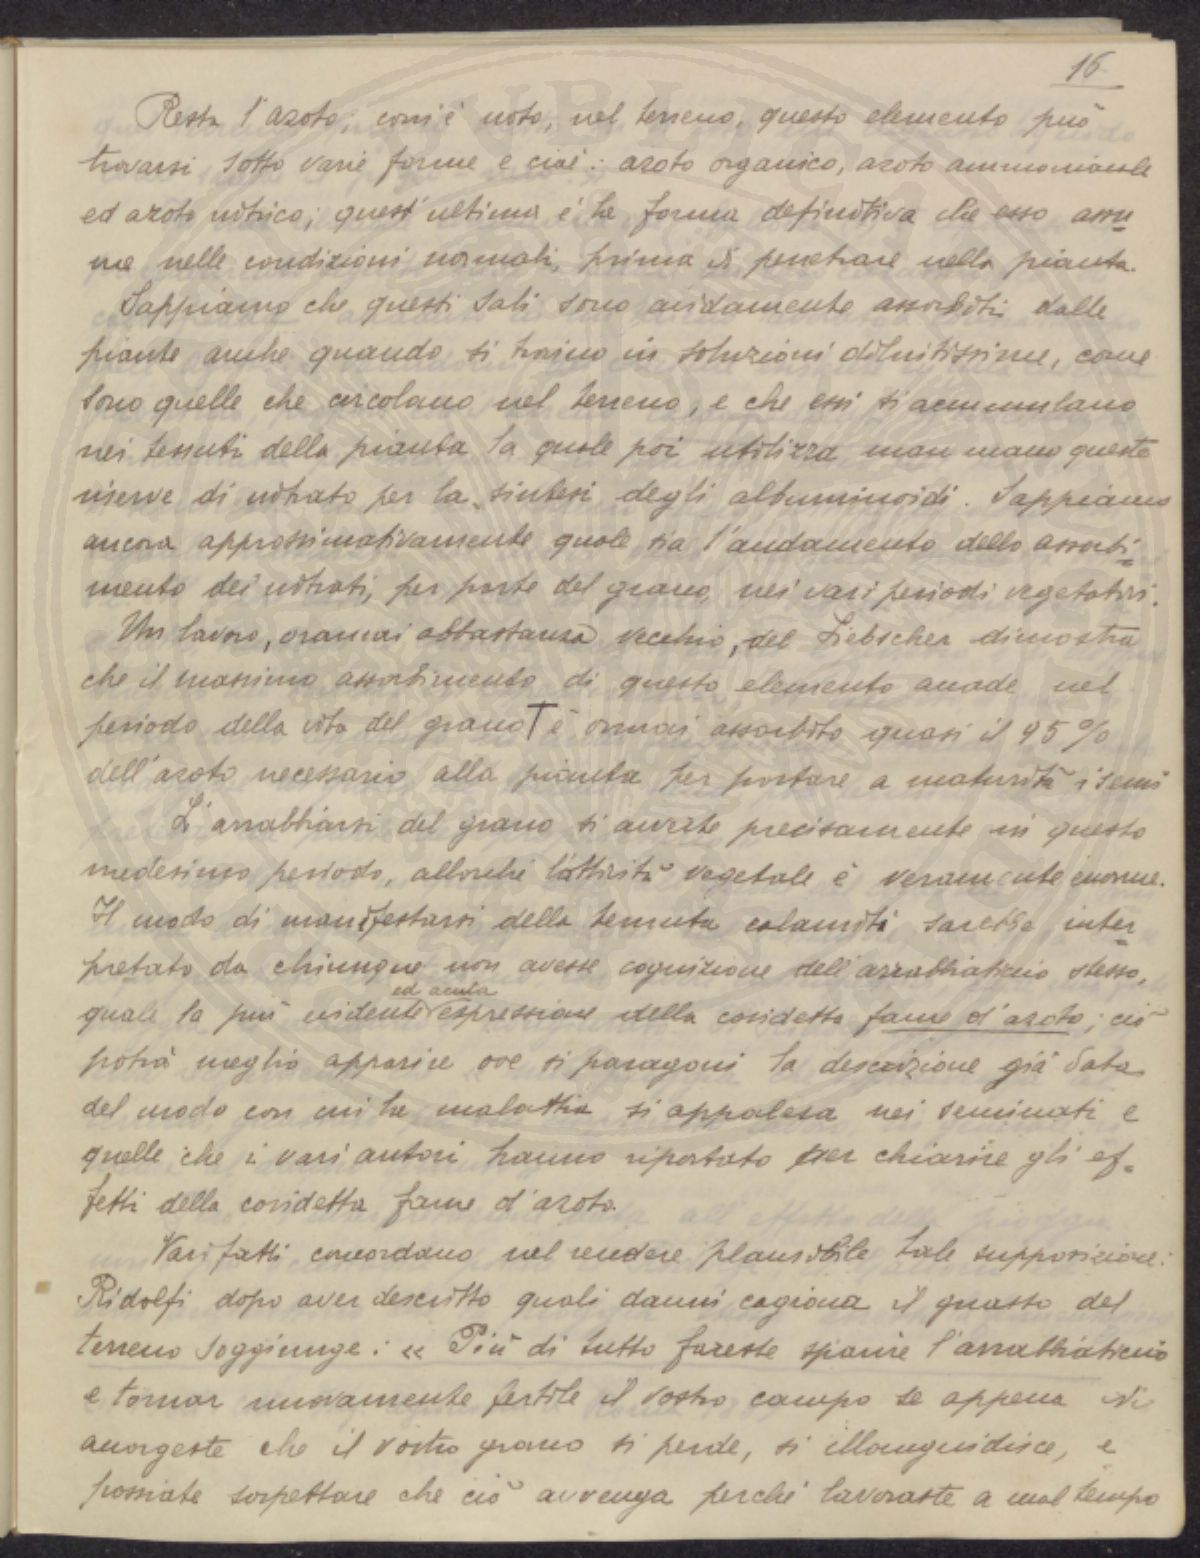 16
Resta l'azoto; com'è noto, nel terreno, questo elemento può
trovarsi sotto varie forme e cioè: azoto organico, azoto ammoniacale
ed azoto nitrico; quest'ultima è la forma definitiva che esso assu=
me nelle condizioni normali, prima di penetrare nella pianta.
Sappiamo che questi sali sono avidamente assorbiti dalle
piante anche quando si trovino in soluzioni diluitissime, come
sono quelle che circolano nel terreno, e che essi si accumulano
nei tessuti della pianta la quale poi utilizza man mano queste
riserve di nitrato per la sintesi degli albuminoidi. Sappiamo
ancora approssimativamente quale sia l'andamento dello assorbi=
mento dei nitrati, per parte del grano, nei vari periodi vegetativi.
Un lavoro, oramai abbastanza vecchio, del Liebscher dimostra
che il massimo assorbimento di questo elemento accade nel
periodo della vita del grano T è ormai assorbito quasi il 95%
dell'azoto necessario alla pianta per portare a maturità i semi
L'arrabbiarsi del grano si avvera precisamente in questo
medesimo periodo, allorchè l'attività vegetale è veramente enorme.
Il modo di manifestarsi della temuta calamità sarebbe inter=
pretato da chiunque non avesse cognizione dell'arrabbiaticcio stesso,
quale la più evidente ed acuta espressione della cosidetta fame d'azoto; ciò
potrà meglio apparire ove si paragoni la descrizione già data
del modo con cui la malattia si appalesa nei seminati e
quelle che i vari autori hanno riportato per chiarire gli ef=
fetti della cosidetta fame d'azoto.
Vari fatti concordano nel rendere plausibile tale supposizione:
Ridolfi dopo aver descritto quali danni cagiona il guasto del
terreno soggiunge: « Più di tutto fareste sparire l'arrabbiaticcio
e tornar nuovamente fertile il vostro campo se appena vi
accorgeste che il vostro grano si perde, si illanguidisce, e
possiate sospettare che ciò avvenga perchè lavoraste a mal tempo